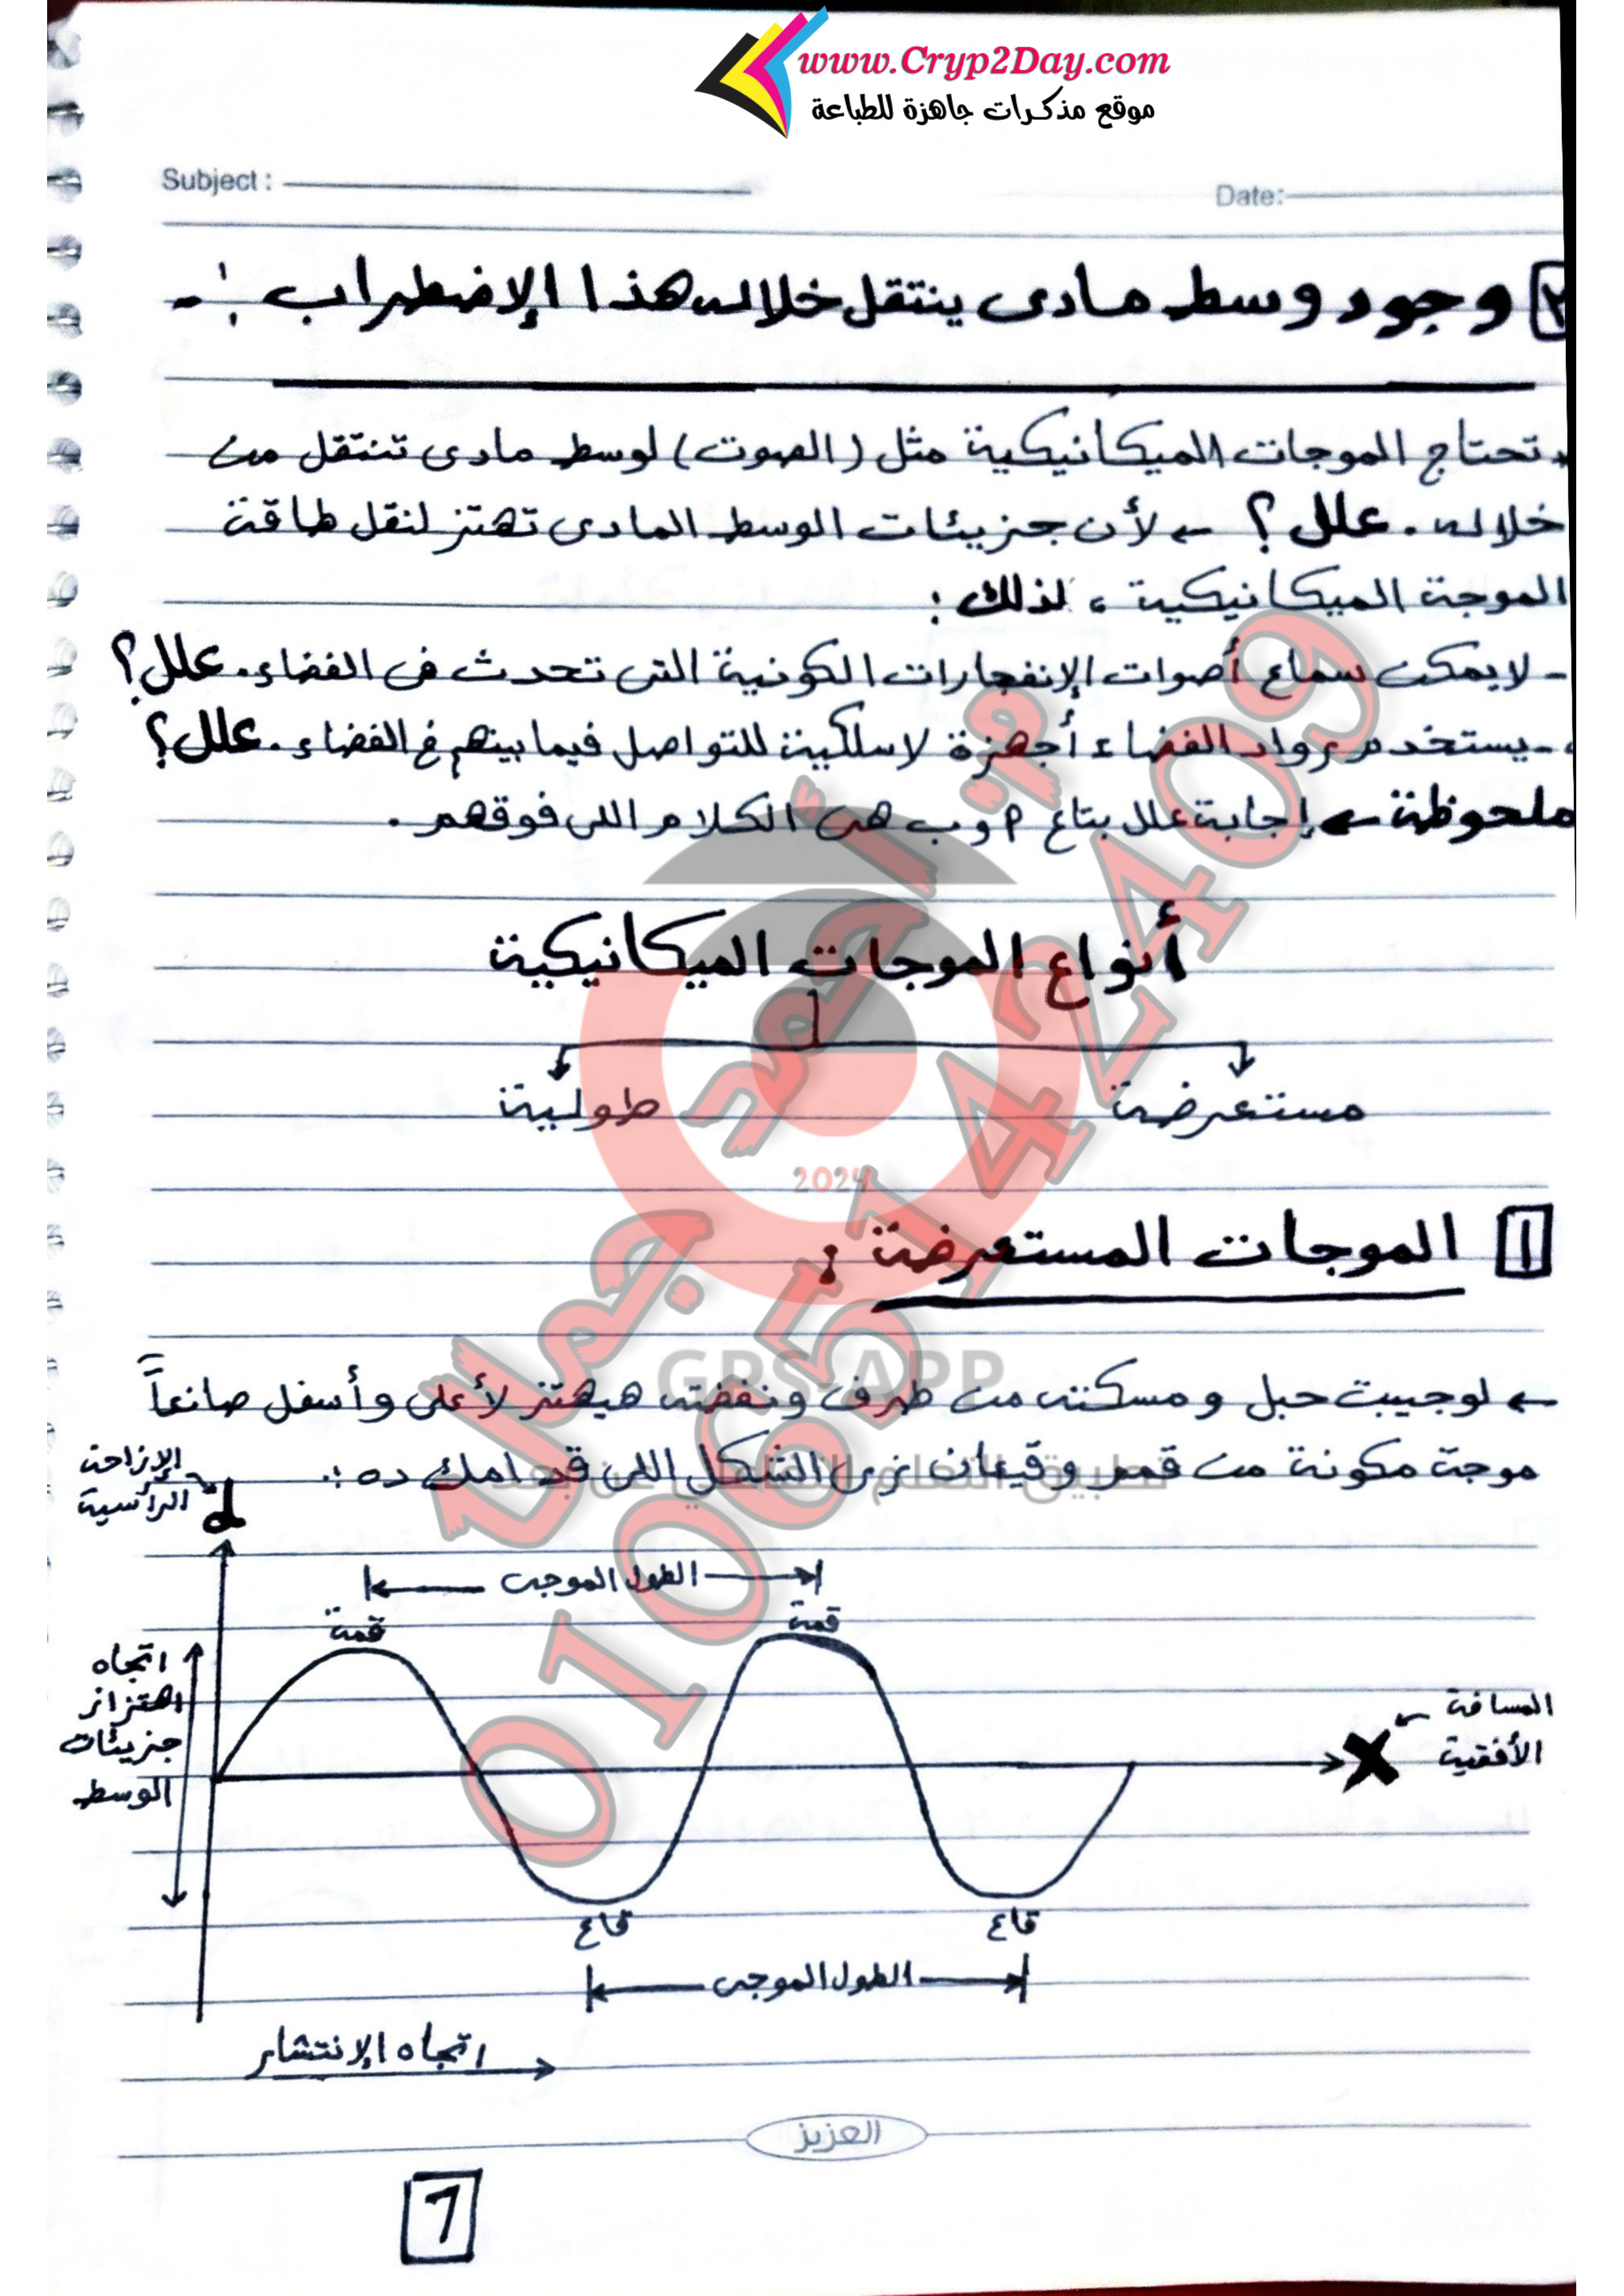 www.Cryp2Day.com
موقع مذكرات جاهزة للطباعة
Subject :
Date:
٢ وجود وسط مادى ينتقل خلاله هذا الإضطراب :-
تحتاج الموجات الميكانيكية مثل (الصوت) لوسط مادى تنتقل من
خلاله . علل ؟ ← لأن جزيئات الوسط المادى تهتز لنقل طاقة
الموجة الميكانيكية ، لذلك :
- لا يمكن سماع أصوات الإنفجارات الكونية التى تحدث فى الفضاء . علل ؟
- يستخدم رواد الفضاء أجهزة لاسلكية للتواصل فيما بينهم فى الفضاء . علل ؟
ملحوظة ← إجابة علل بتاع ٢ وب هى الكلام اللى فوقهم .
أنواع الموجات الميكانيكية
مستعرضة
طولية
2024
١ الموجات المستعرضة :
GPS-APP
← لو جيبت حبل و مسكته من طرف ونفضته هيهتز لأعلى وأسفل صانعاً
موجة مكونة من قمم وقيعان زى الشكل اللى قدامك ده :.
تطبيق التعلم التفاعلي عن بعد
م. أحمد جمال
01065142409
الإزاحة
الرأسية
d
الطول الموجى
قمة
قمة
اتجاه
اهتزاز
جزيئات
الوسط
المسافة
الأفقية
X
قاع
قاع
الطول الموجى
اتجاه الإنتشار
العزيز
7